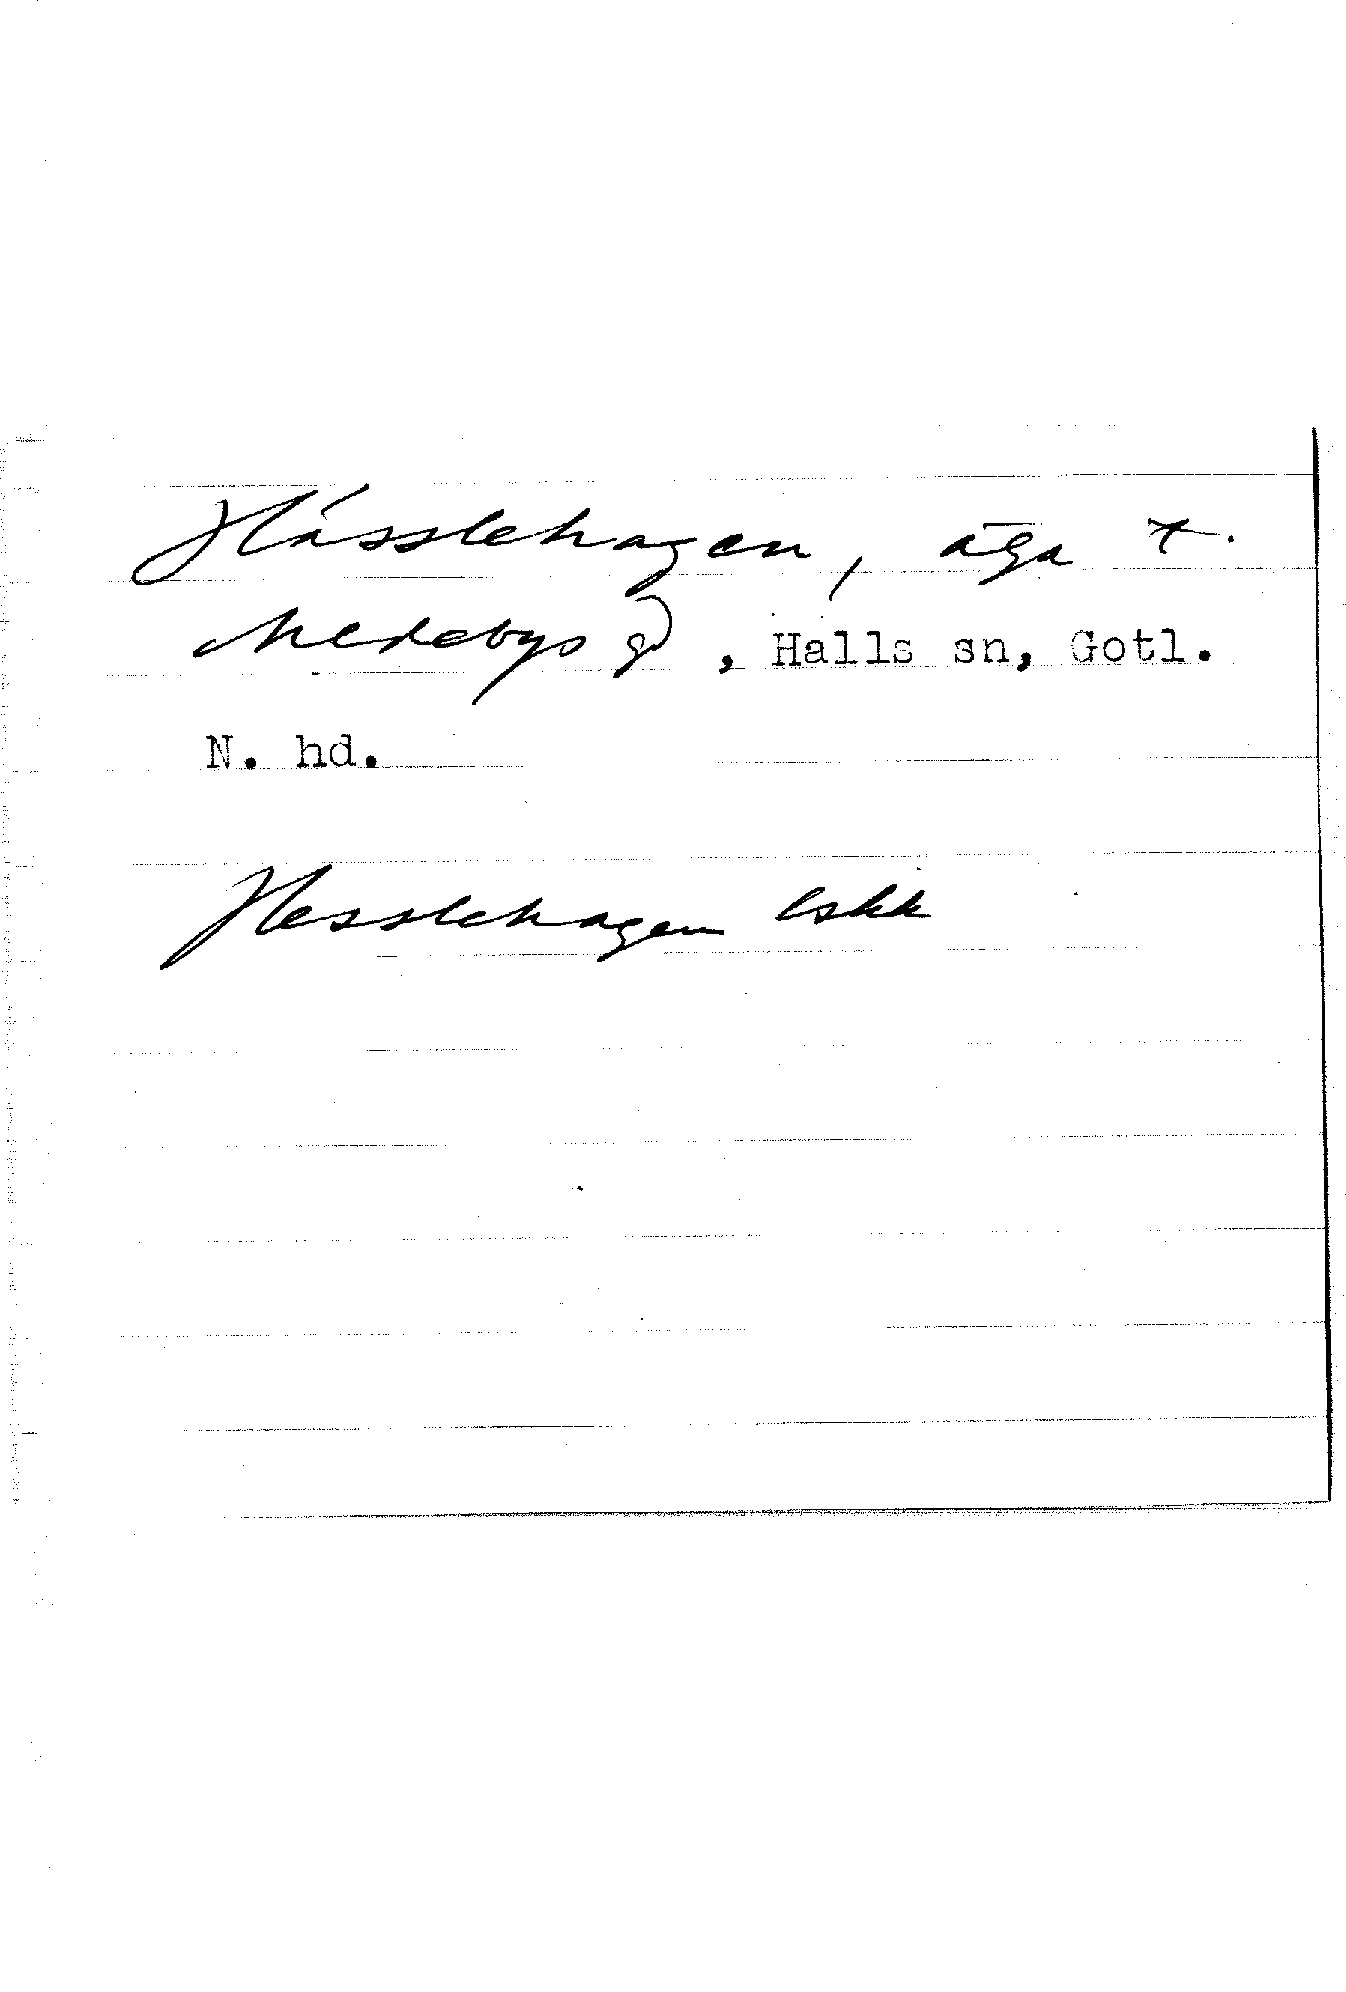 Hässlehagen, äga t.
Medebys gd, Halls sn, Gotl.
N. hd.
Hesslehagen Eskk